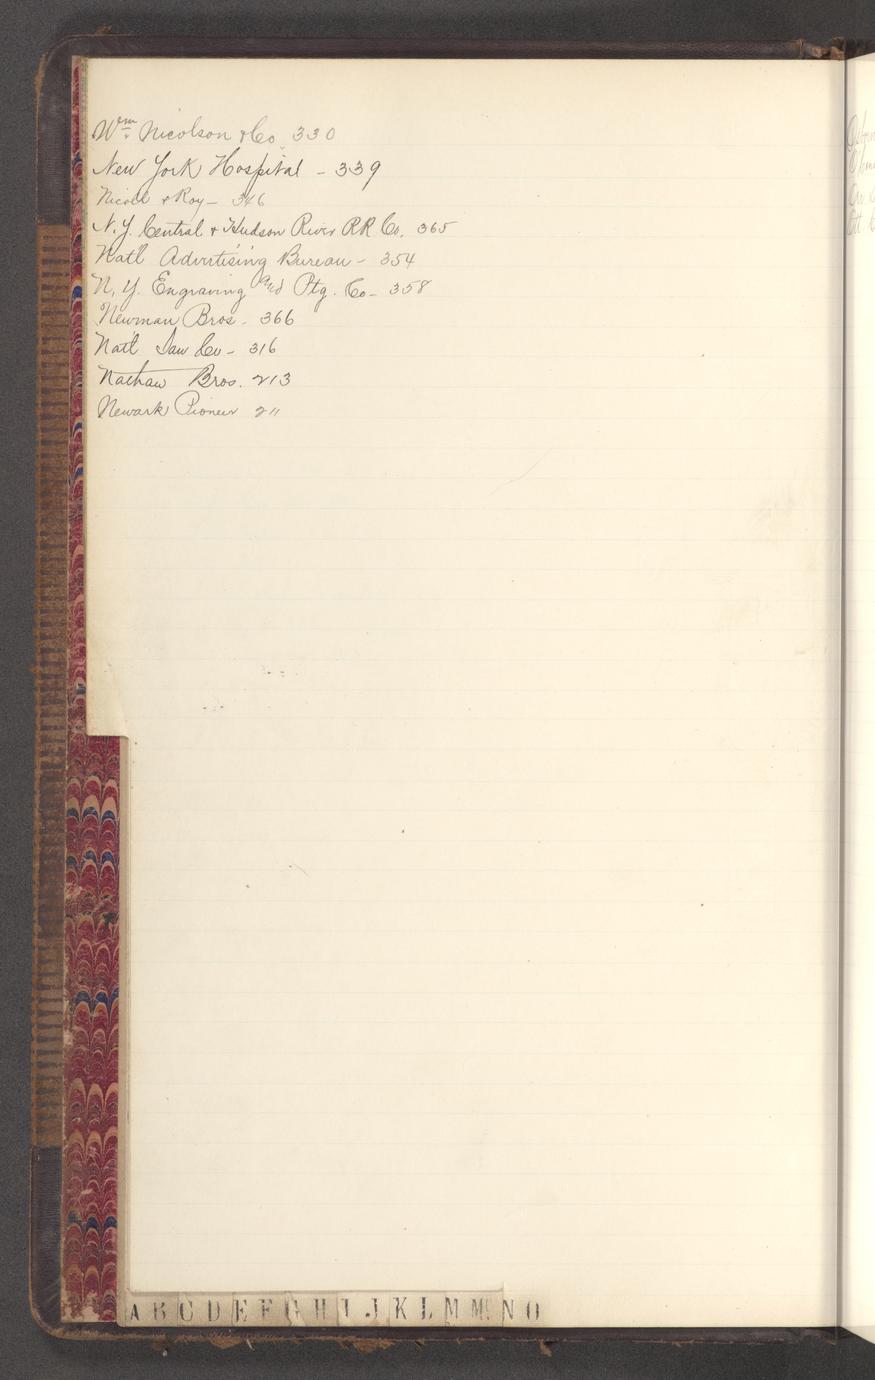 Wm. Nicolson & Co. 330
New York Hospital - 339
Nicoll & Roy - 346
N.Y. Central & Hudson River RR Co. 365
Natl Advertising Bureau - 354
N.Y. Engraving and Ptg. Co - 358
Newman Bros - 366
Natl Saw Co - 316
Nathan Bros. 213
Newark Pioneer 211
A B C D E F G H I J K L M Mc N O